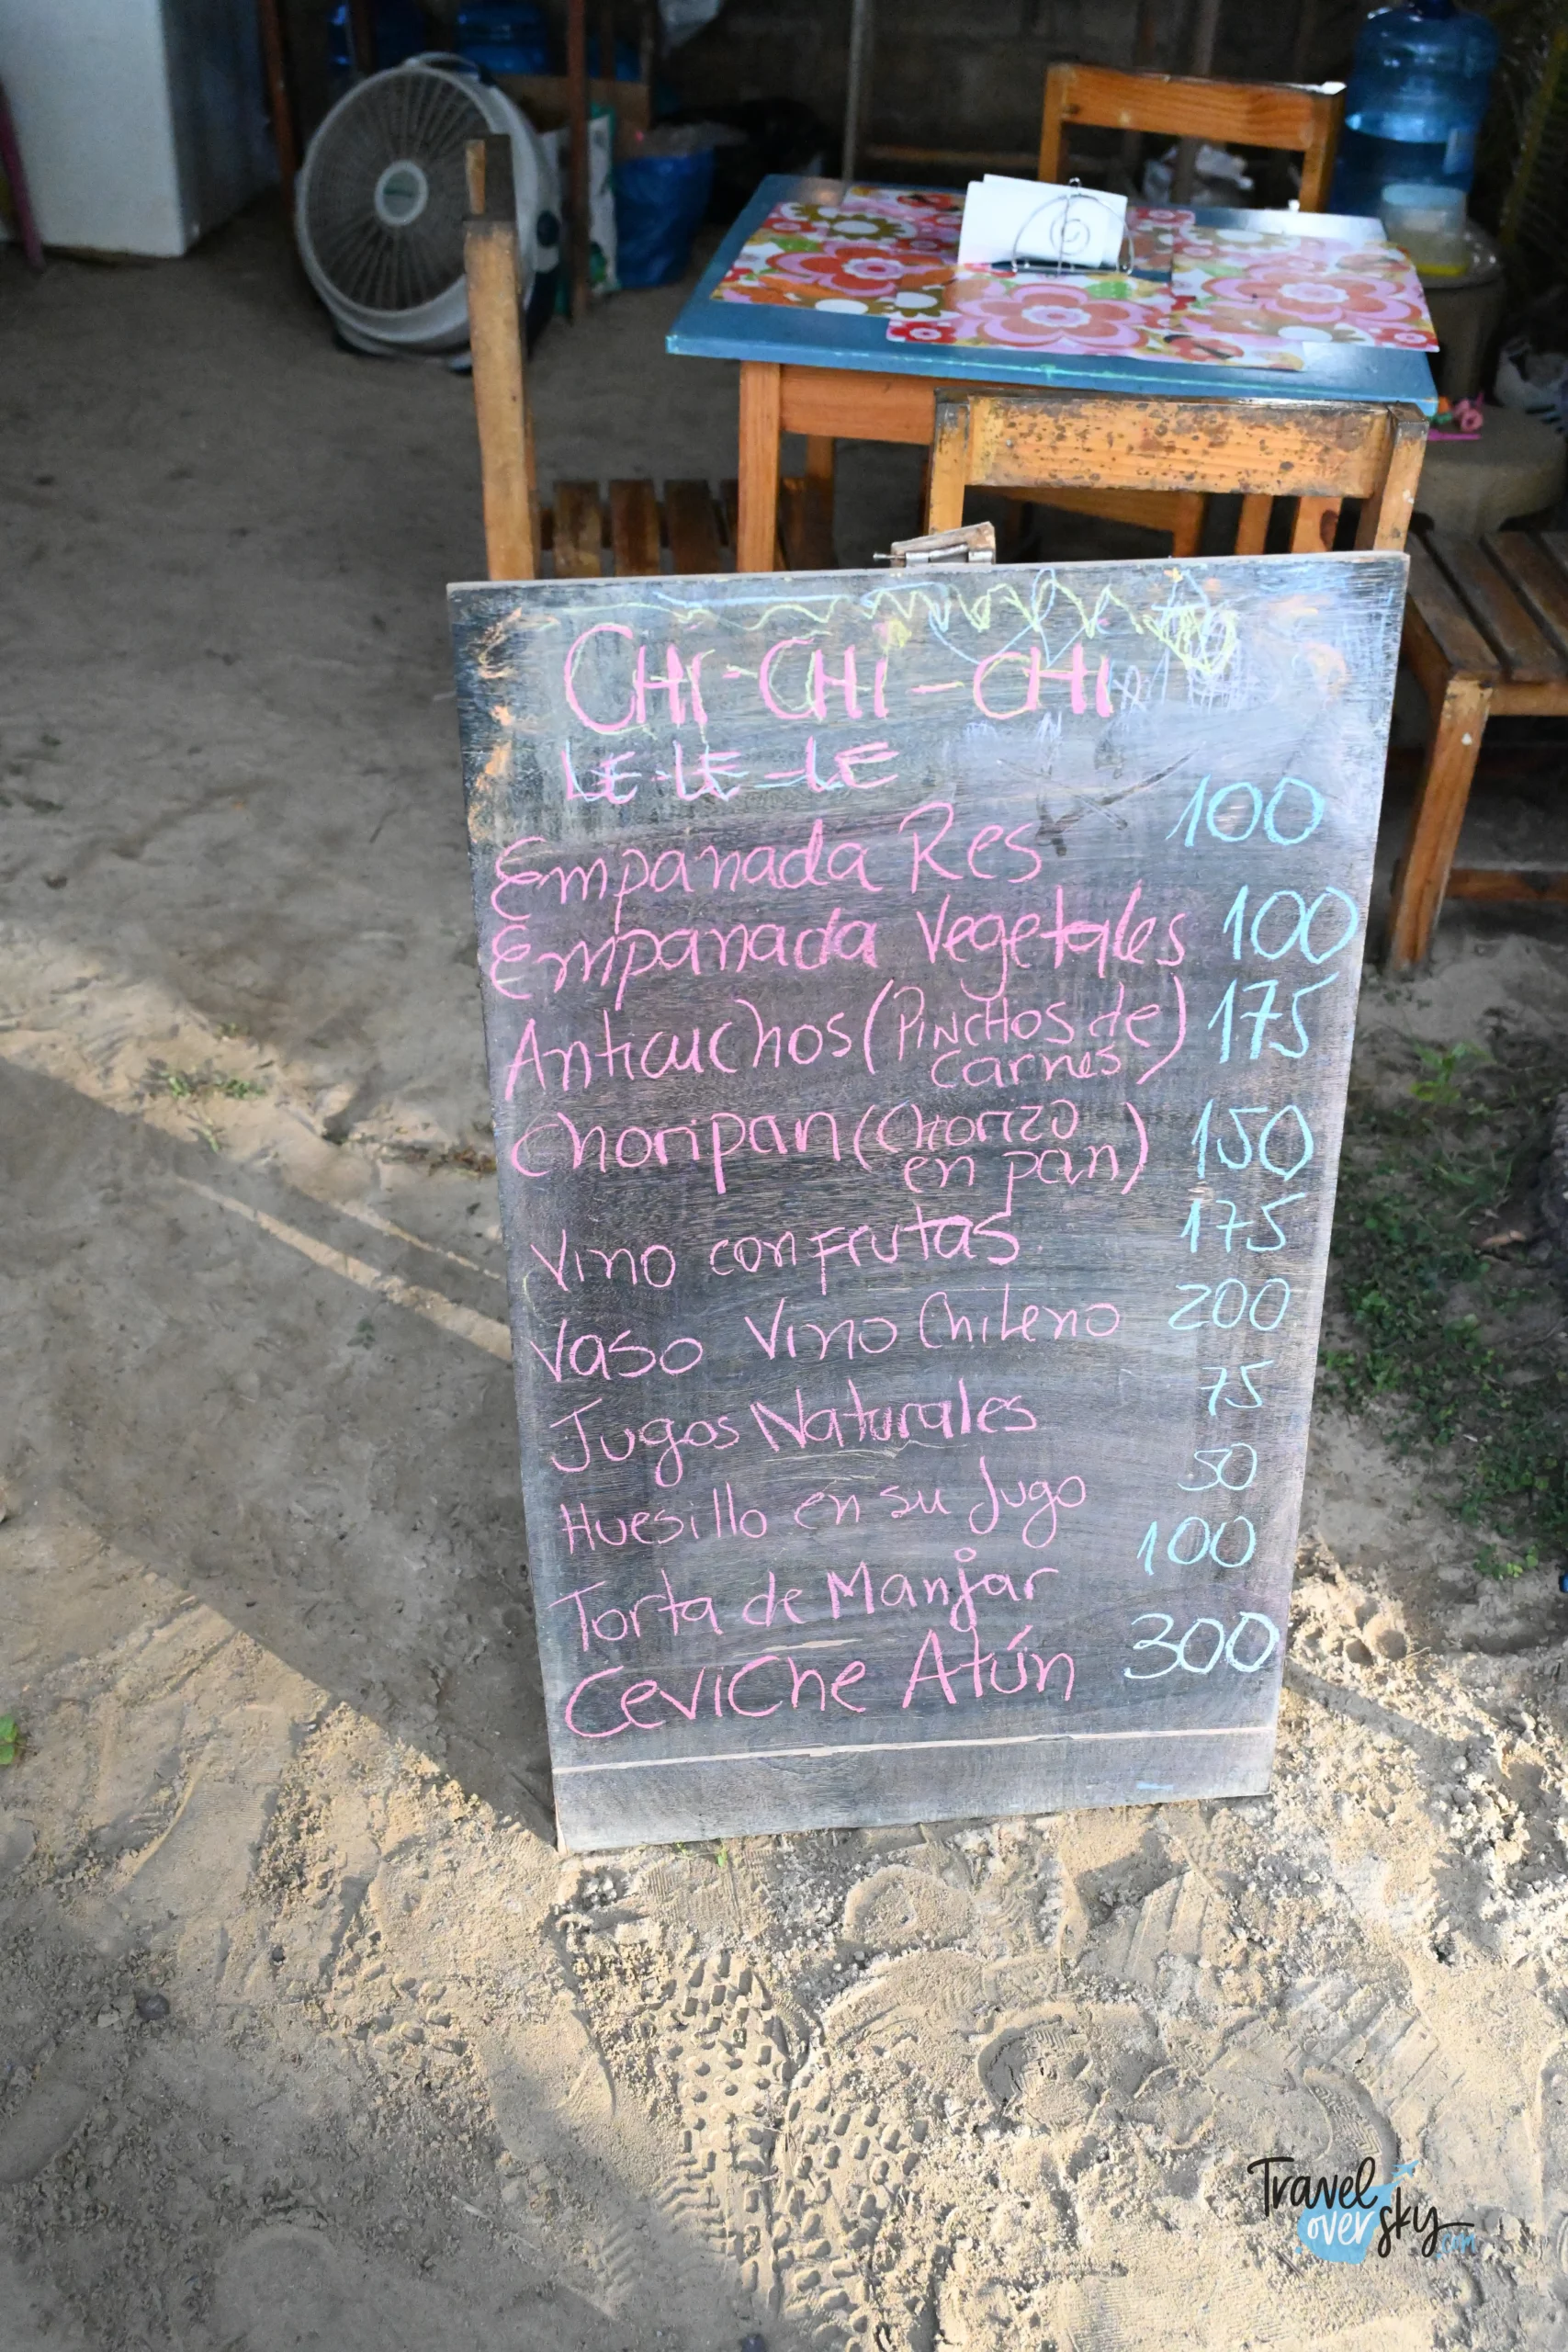 CHI-CHI-CHI
LE-LE-LE
Empanada Res 100
Empanada Vegetales 100
Anticuchos (PINCHOS de 175
carnes)
Choripan (Chorizo 150
en pan)
Vino con frutas 175
Vaso Vino Chileno 200
Jugos Naturales 75
Huesillo en su Jugo 50
Torta de Manjar 100
Ceviche Atún 300
Travel
over sky
.com